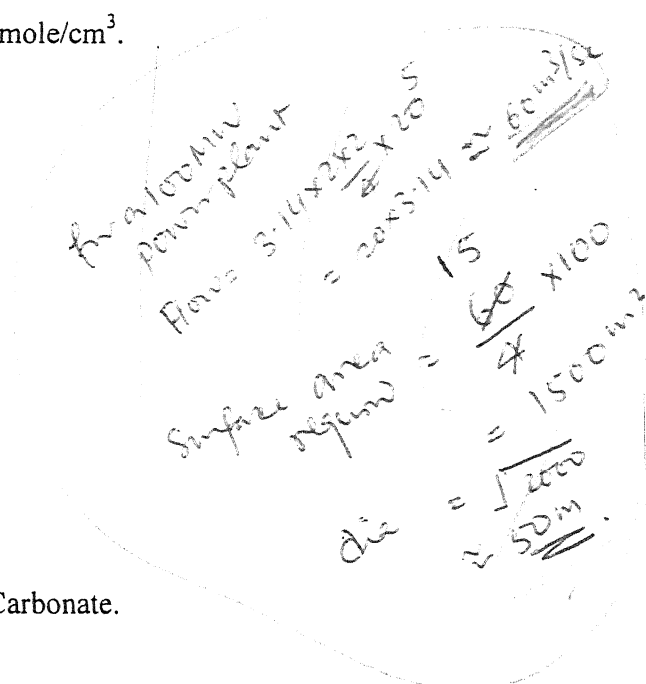 mole/cm³.
for a 100 MW
power plant
Flow = 3.14 x 2 x 2 / 4 x 20
= 20 x 3.14 ≃ 60 m³/sec
Surface area required = 60/4 x 100
15
= 1500 m²
dia = √2000
≃ 50 m.
Carbonate.